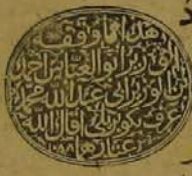 هذا ما وقفه
الوزير ابو العباس احمد
ابن الوزير ابي عبد الله محمد
عرف بكوبريلي اقال الله
عثارهما
١٠٨٨